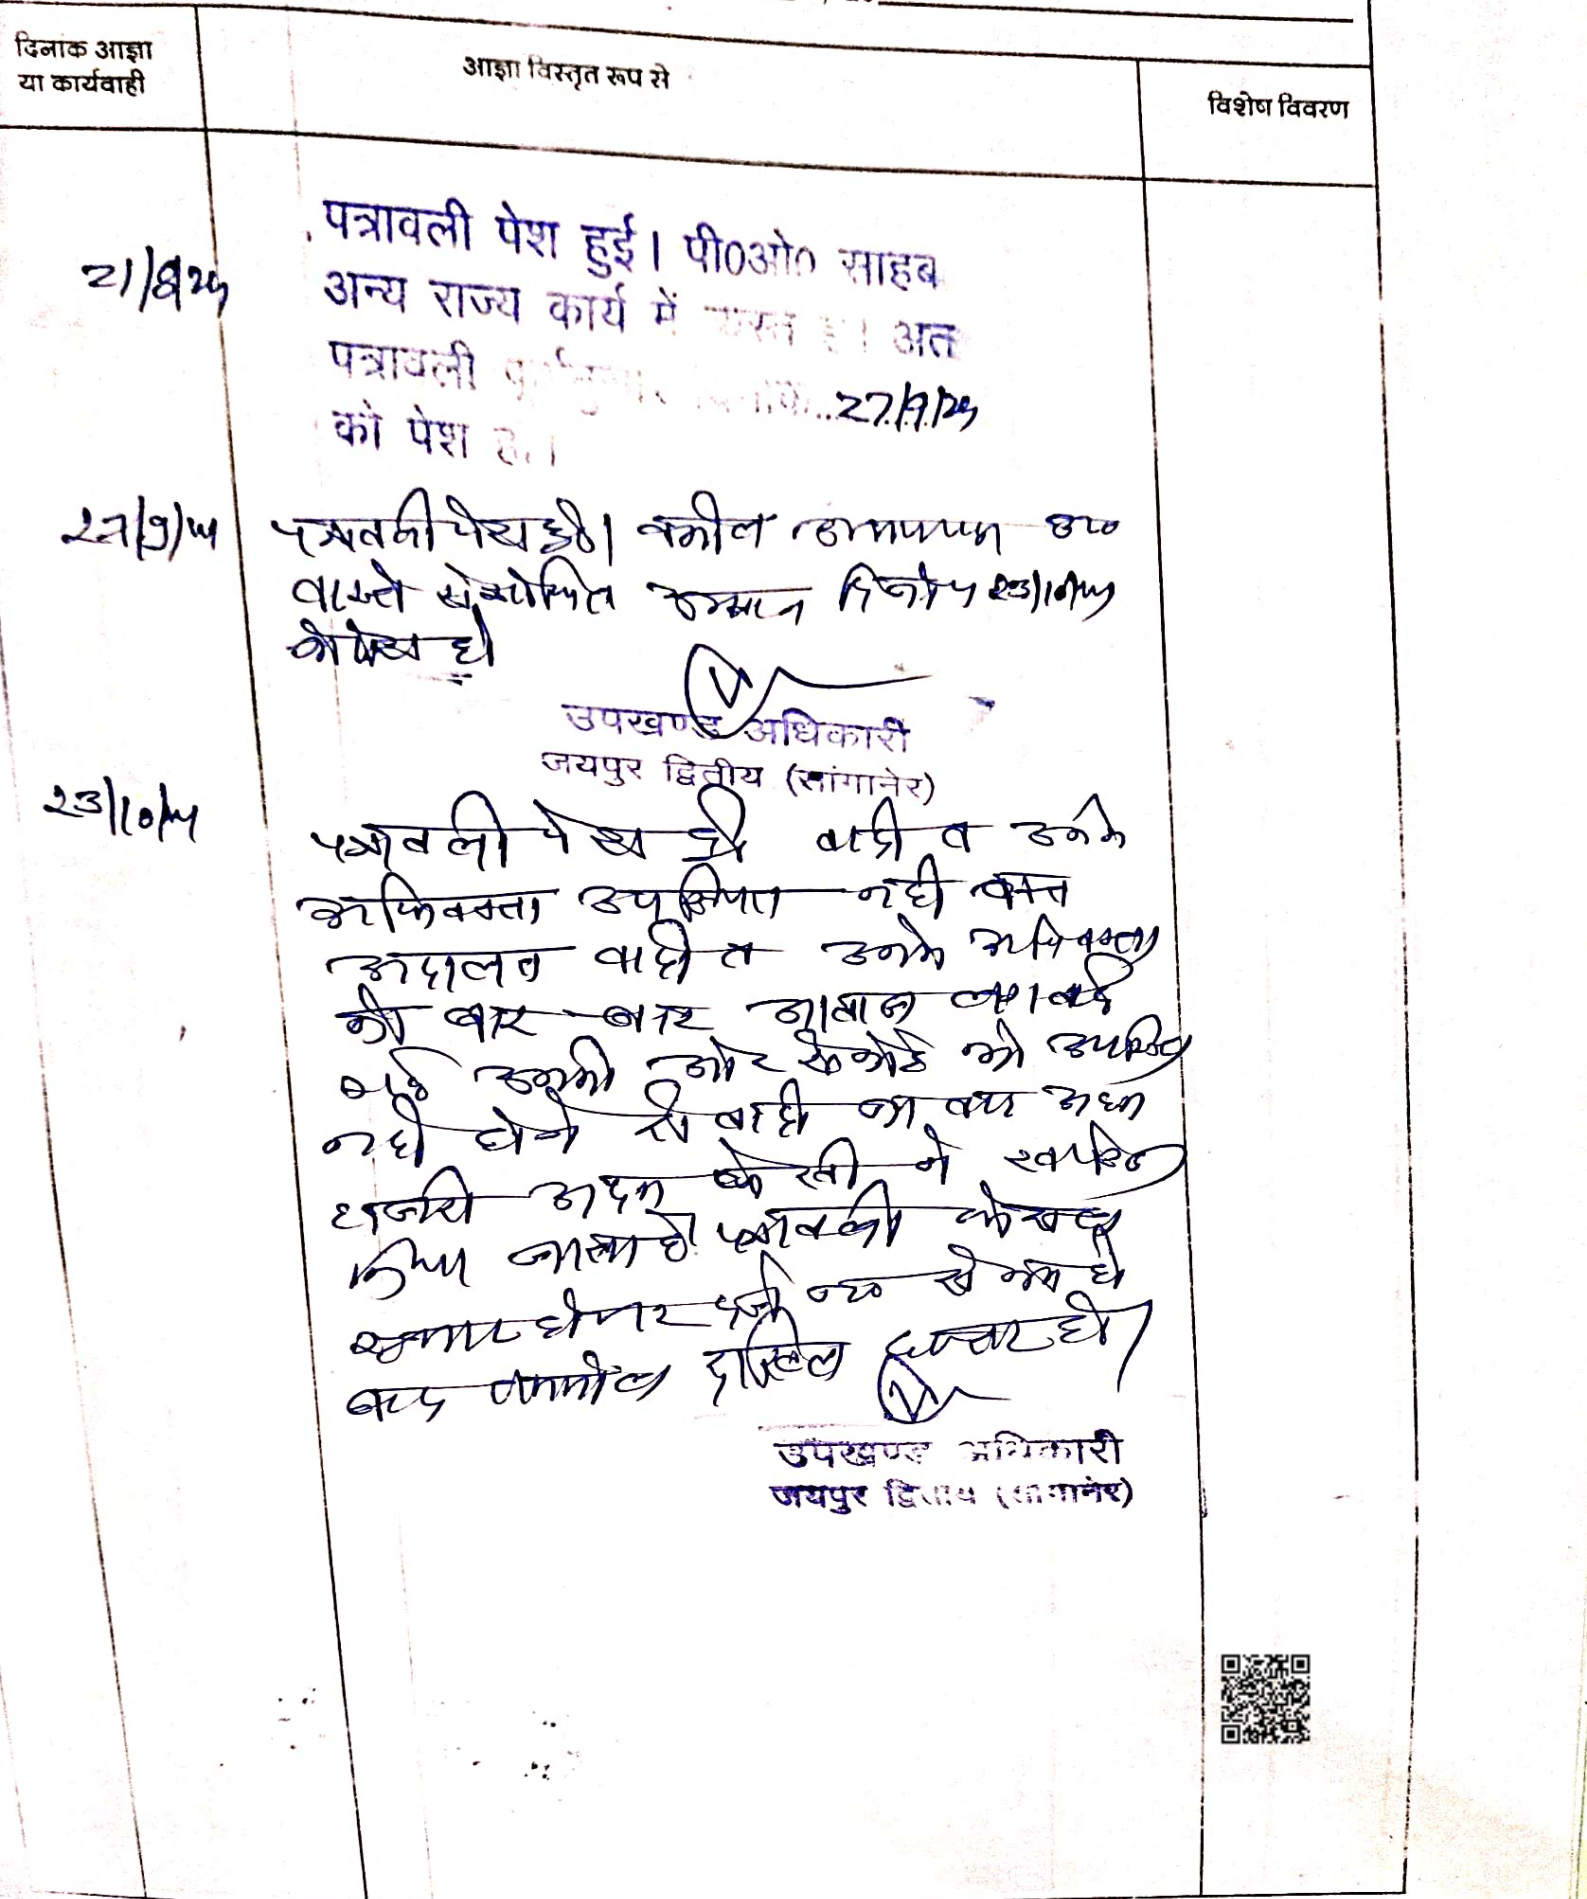 दिनांक आज्ञा
या कार्यवाही
आज्ञा विस्तृत रूप से
विशेष विवरण
21/8/24
पत्रावली पेश हुई। पी0ओ0 साहब
अन्य राज्य कार्य में अत
पत्रावली 27/9/24
को पेश
27/9/24
पत्रावली पेश हुई। वकील उप0
वास्ते 23/10/24
को पेश हो
उपखण्ड अधिकारी
जयपुर द्वितीय (सांगानेर)
23/10/24
पत्रावली पेश हुई वादी व उनके
अधिवक्ता उपस्थित नही वक्त
अदालत वादी व उनके अधिवक्ता
को बार-बार आवाज लगवाई
गई उनकी ओर से कोई भी उपस्थित
नही होने से वादी का वाद अदम
हाजरी अदम पैरवी मे खारिज
किया जाता है। पत्रावली फैसल
शुमार होकर न0 से कम हो
बाद दाखिल दफ्तर हो।
उपखण्ड अधिकारी
जयपुर द्वितीय (सांगानेर)